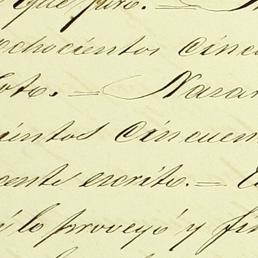 que juro. =
ochocientos cincu
oto. = Naran
cientos cincuen
cente escrito. = E
i lo proveyó y fir